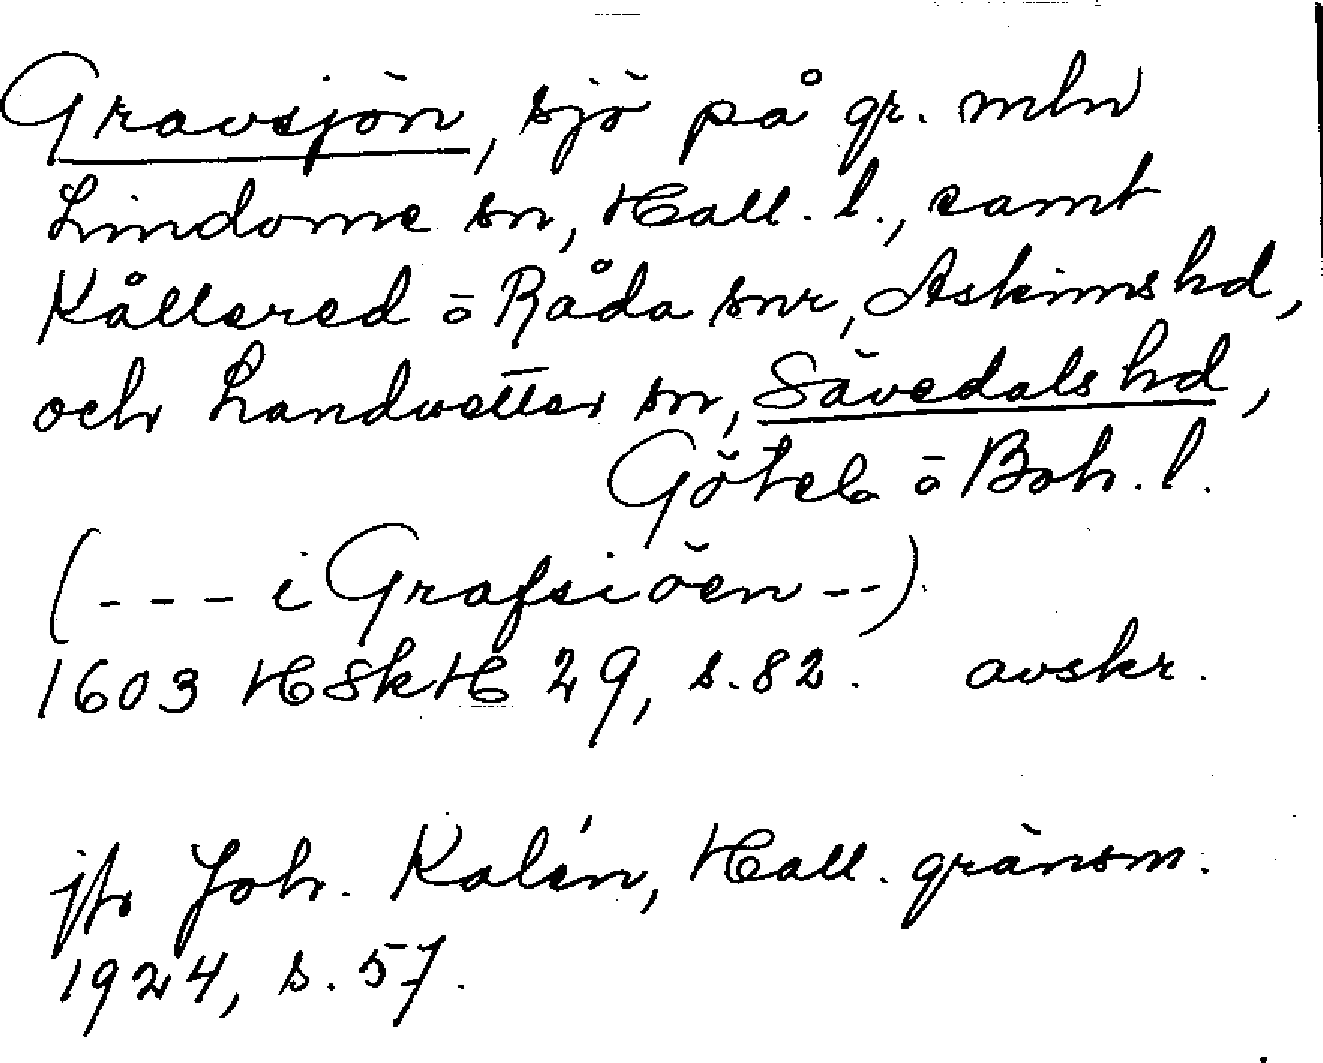 Gravsjön, sjö på gr. mln
Lindome sn, Hall. l., samt
Kållered o Råda snr, Askims hd,
och Landvetter sn, Sävedals hd,
Göteb o Boh. l.
(--- i Grafsiöen --)
1603 HSkH 29, s. 82. avskr.
jfr Joh. Kalén, Hall. gränsm.
1924, s. 57.